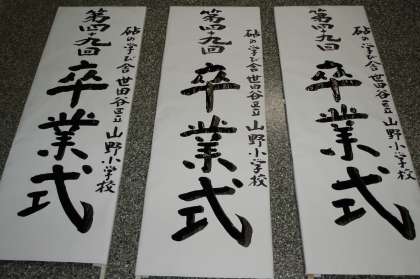 砧の学び舎 世田谷区立 山野小学校
第四十九回 卒業式
砧の学び舎 世田谷区立 山野小学校
第四十九回 卒業式
砧の学び舎 世田谷区立 山野小学校
第四十九回 卒業式